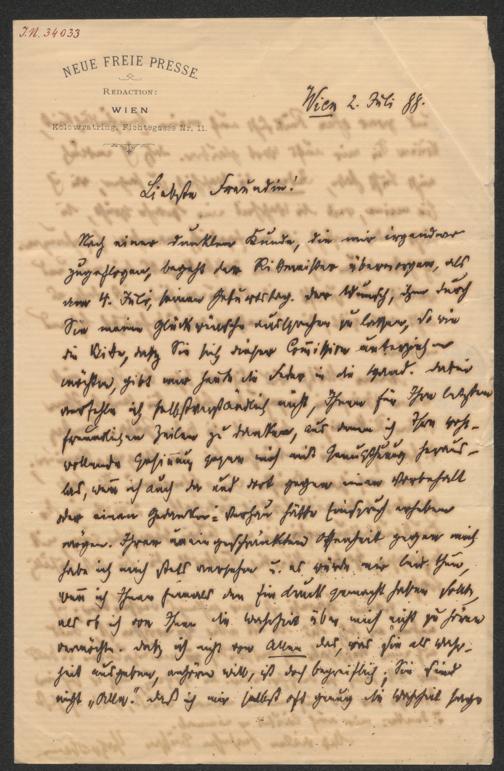 I.N. 34033
NEUE FREIE PRESSE.
REDACTION:
WIEN
Kolowratring, Fichtegasse Nr. 11.
Wien 2. Juli 88.
Liebste Freundin!
Nach einer dunklen Kunde, die mir irgendwo
zugeflogen, begeht der Rittmeister übermorgen, als
am 4. Juli, seinen Geburtstag. Der Wunsch, ihm durch
Sie meine Glückwünsche aussprechen zu lassen, so wie
die Bitte, daß Sie sich dieser Comission unterziehen
möchten, gibt mir heute die Feder in die Hand. Dabei
verfehle ich selbstverständlich nicht, Ihnen für Ihre letzten
freundlichen Zeilen zu danken, aus denen ich Ihre wohl-
wollende Gesinnung gegen mich mit Genugthuung heraus-
las, wenn ich auch da und dort gegen einen Vorbehalt
oder einen Gedanken- Einspruch erheben
mögen. Ihrer uneingeschränkten Offenheit gegen mich
habe ich mich stets versehen u. es würde mir leid thun,
wenn ich Ihnen jemals den Eindruck gemacht haben sollte,
als ob ich von Ihnen die Wahrheit über mich nicht zu hören
vermöchte. Daß ich nicht von Allen das, was sie als Wahr-
heit ausgeben, anhören will, ist doch begreiflich; Sie sind
nicht „Alle“. Daß ich mir selbst oft genug die Wahrheit sage